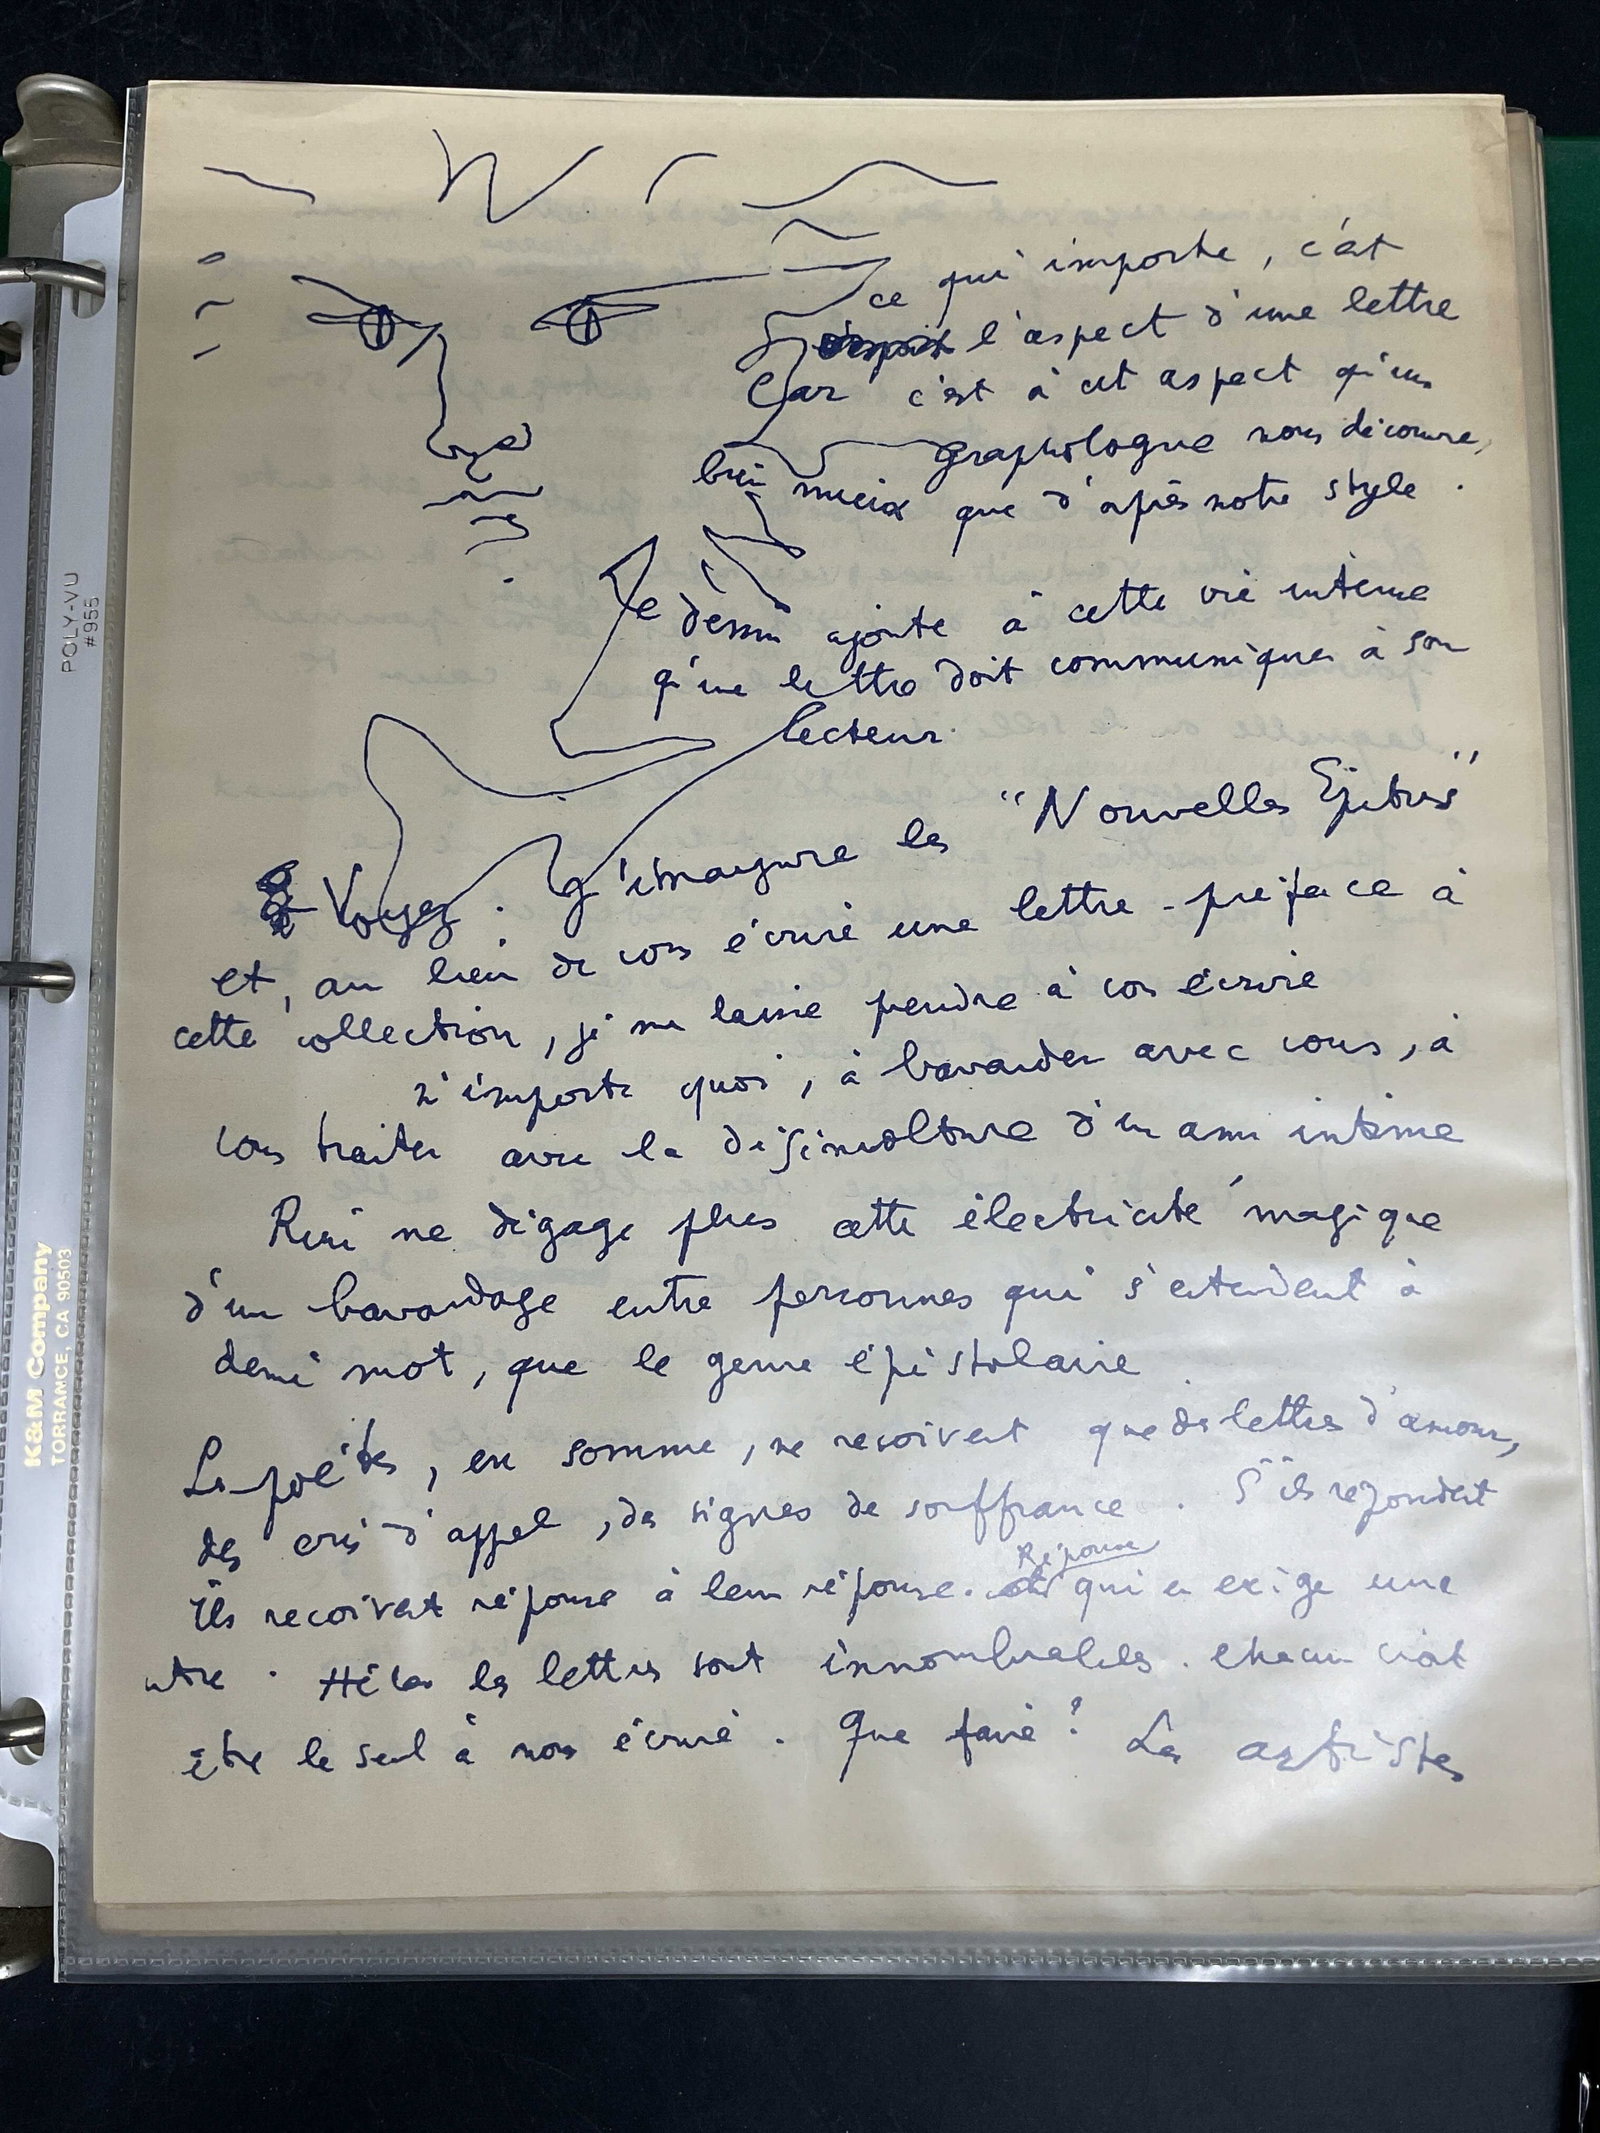 ce qui importe, c'est
l'aspect d'une lettre
Car c'est à cet aspect qu'un
graphologue nous découvre,
bien mieux que d'après notre style.
Le dessin ajoute à cette vie interne
qu'une lettre doit communiquer à son
lecteur.
Voyez. J'inaugure les "Nouvelles Epitres"
et, au lieu de vous écrire une lettre-préface à
cette collection, je me laisse prendre à vous écrire
n'importe quoi, à bavarder avec vous, à
vous traiter avec la désinvolture d'un ami intime
Rien ne dégage plus cette électricité magique
d'un bavardage entre personnes qui s'entendent à
demi mot, que le genre épistolaire
Les poètes, en somme, ne reçoivent que des lettres d'amour,
des cris d'appel, des signes de souffrance. S'ils répondent
Réponse
Ils reçoivent réponse à leur réponse. qui en exige une
autre. Hélas les lettres sont innombrables. Chacun croit
être le seul à nous écrire. Que faire? Les artistes
POLY-VU
#955
K&M Company
TORRANCE, CA 90503